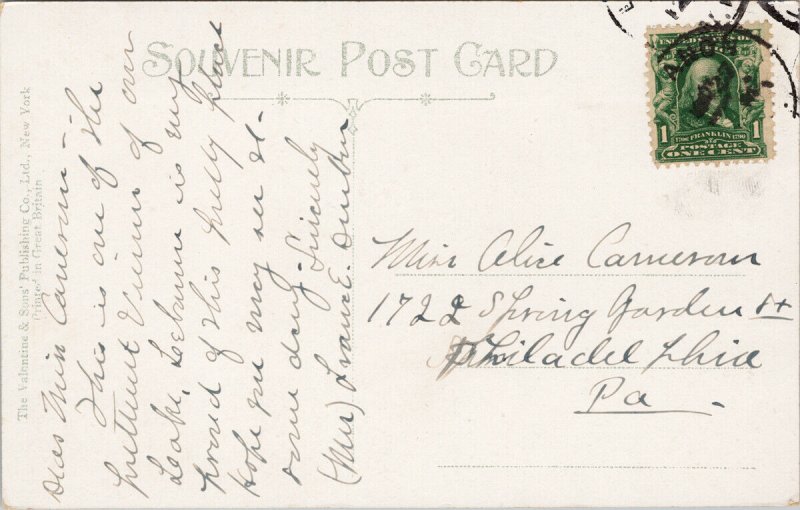 SOUVENIR POST CARD
The Valentine & Sons' Publishing Co., Ltd., New York
Printed in Great Britain
Dear Miss Cameron-
This is one of the
prettiest Views of our
Lake, Lebanon is
proud of this pretty place
Hope you may see it
some day. Sincerely
(Mrs)
Miss Alice Cameron
1722 Spring Garden St
Philadelphia
Pa
1
1
FRANKLIN
POSTAGE
ONE CENT